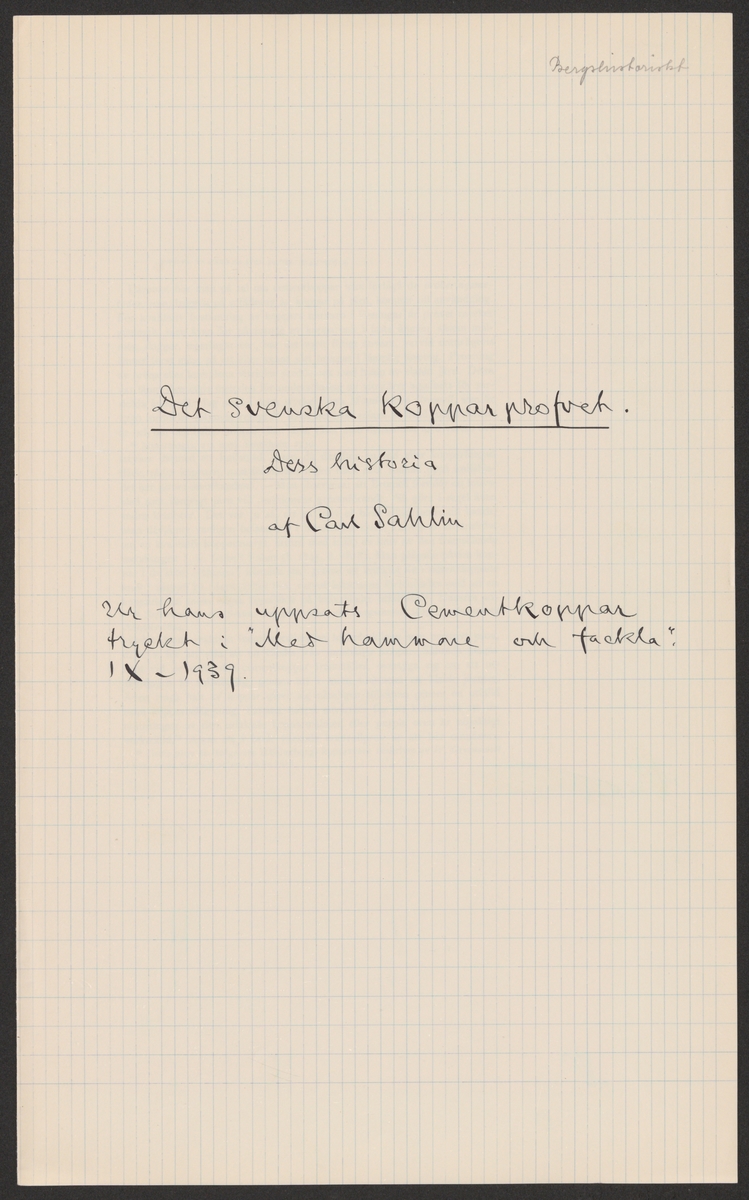 Bergshistoriskt
Det svenska kopparprofvet.
Dess historia
af Carl Sahlin
Ur hans uppsats Cementkoppar
tryckt i "Med hammare och fackla".
IX – 1939.